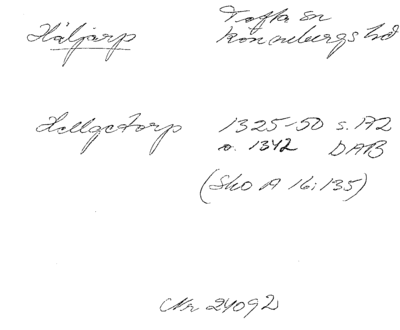 Häljarp Tofta sn
Rönnebergs hd
Hellgetorp 1325-50 s. 172
o. 1342 DAB
(Sko A 16:135)
Nr 24092